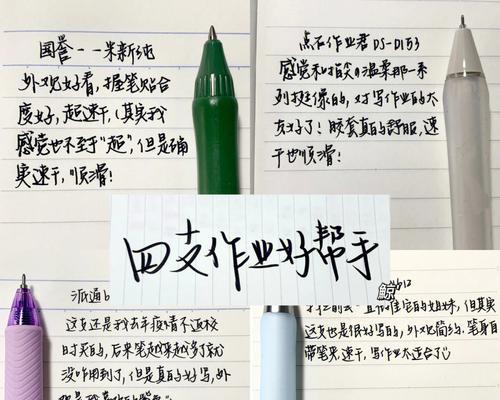 国誉——米新纯
外观好看，握笔贴合
度好，超速干，（其实我
感觉也不至于"超"，但是确
实速干，顺滑！
点石作业君 DS-D153
感觉和指尖の温柔那一系
列挺像的，对写作业的大
友好了！胶套真的舒服，速
干也顺滑！
四支作业好帮手
鲸
派通b
这支还是我去年疫情不返校
时买的，后来笔越来越多了就
没咋用到了，但是真的好写，外
612
直作佳官的姐妹，但其实
这支也是很好写的，外观简约，笔身自
带笔夹，速干，写作业不适合了